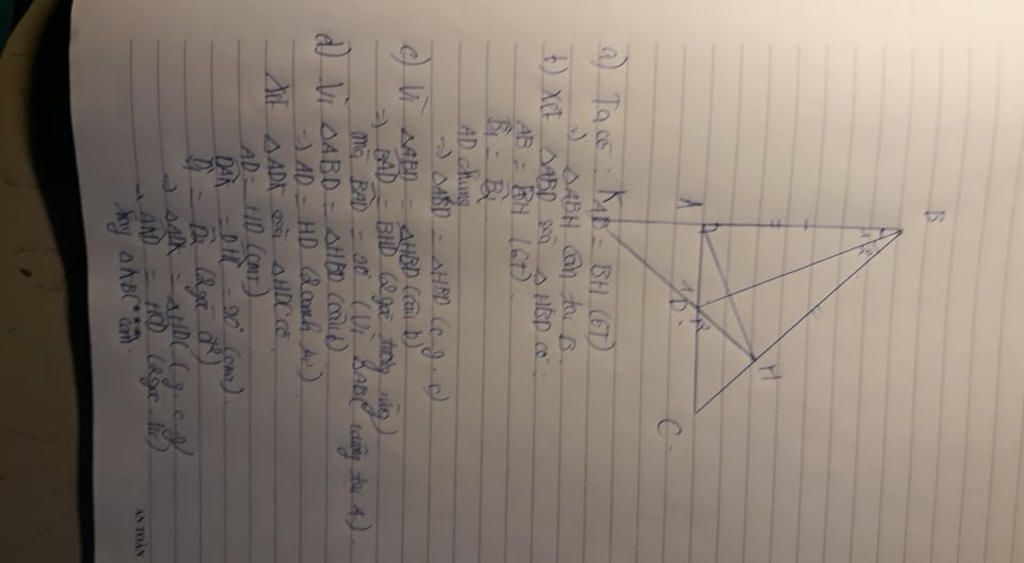 B
A
K
D
H
C
1
2
1
2
a) Ta có: AB = BH (GT)
⇒ △ABH cân tại B.
b) Xét △ABD và △HBD có:
AB = BH (GT).
B̂1 = B̂2
AD chung
⇒ △ABD = △HBD (c.g.c)
c) Vì △ABD = △HBD (câu b)
⇒ BAD = BHD (2 góc tương ứng)
mà BAD = 90° (Vì △ABC vuông tại A)
d) Vì △ABD = △HBD (câu b)
⇒ AD = HD (2 cạnh t/ư)
Xét △ADK và △HDC có:
AD = HD (cmt)
= 90° (cmt).
D̂1 = D̂2 (2 góc đ²)
⇒ △ADK = △HDC (g.c.g)
⇒ = (2 góc t/ư)
Vậy △ABC cân.
ANTOÀN